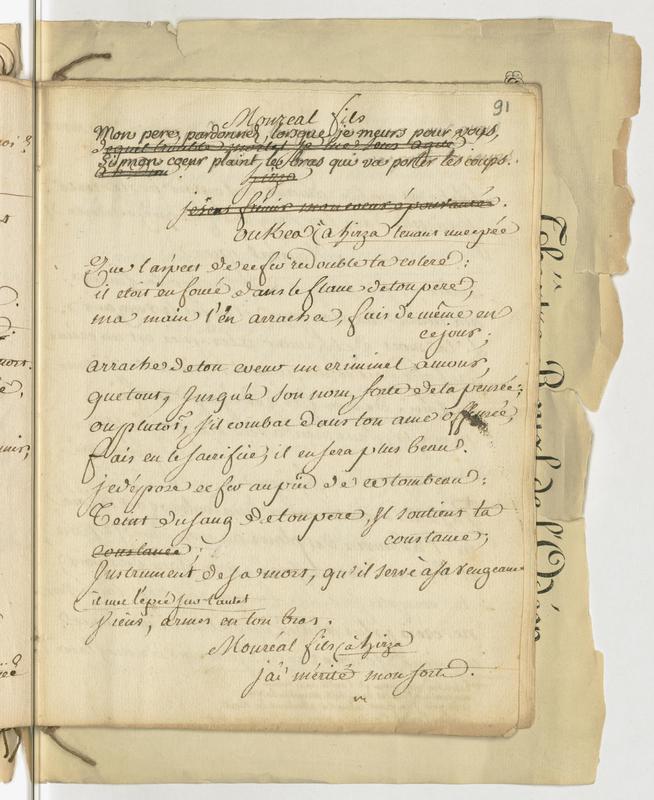 91
Monréal fils
Mon pere, pardonnés, lorsque je meurs pour vous,
Si mon coeur plaint les bras qui va porter les coups.
hirza
je sens frémir mon coeur épouvanté.
oukea (à hirza tenant une epée
Que l'aspect de ce fer redouble ta colere :
il etoit enfoncé dans le flanc de ton pere,
ma main l'en arracha, fais de même en
ce jour ;
arrache de ton coeur un criminel amour,
que tout, jusqu'à son nom, sorte de ta pensée ;
ou plutôt, s'il combat dans ton ame offensée,
fais en le sacrifice, il en sera plus beau.
je dépose ce fer au pié de ce tombeau :
Teint du sang de ton pere, il soutient ta
constance ;
constance ;
Instrument de sa mort, qu'il serve à sa vengeance
(il met l'epée sur l'autel
Viens, armes en ton bras.
Monréal fils (à hirza
j'ai mérité mon sort.